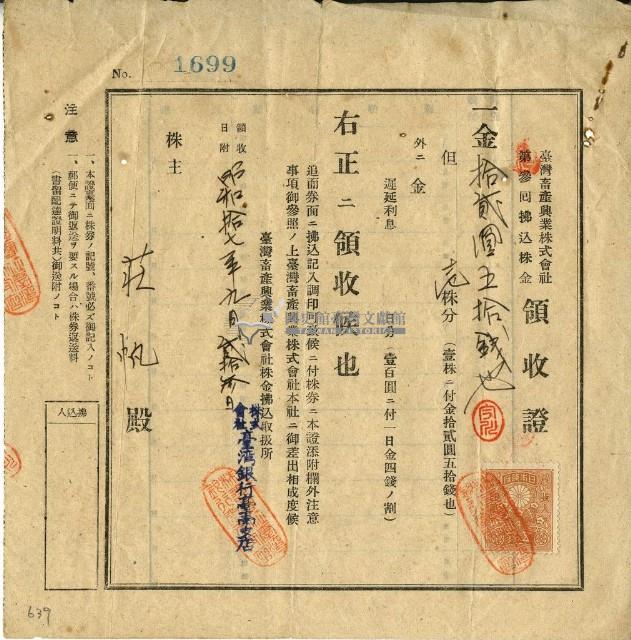 No. 1699
臺灣畜產興業株式會社
第參回拂込株金
領收證
一金拾貳圓五拾錢也
但 壱株分（壹株ニ付金拾貳圓五拾錢也）
外ニ金
遲延利息
壹百圓ニ付一日金四錢ノ割）
右正ニ領收候也
追而券面ニ拂込記入調印可致候ニ付株券ニ本證添附欄外注意
事項御參照ノ上臺灣畜產興業株式會社本社ニ御差出相成度候
臺灣畜產興業株式會社株金拂込取扱所
株式會社臺灣銀行
領收日附
昭和拾七年九月貳拾
株主
莊帆
殿
注意
一、本證裏面ニ株券ノ記號、番號必ズ御記入ノコト
一、郵便ニテ御返送ヲ要スル場合ハ株券返送料
（書留配達證明料共）御送附ノコト
拂込人
639